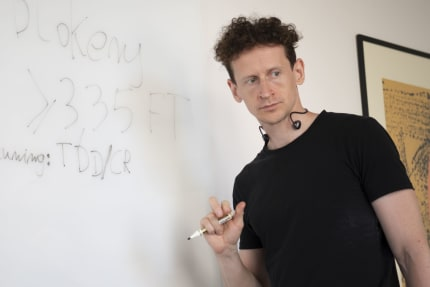 Dlokeny
> 335 FT
unning: TDD/CR